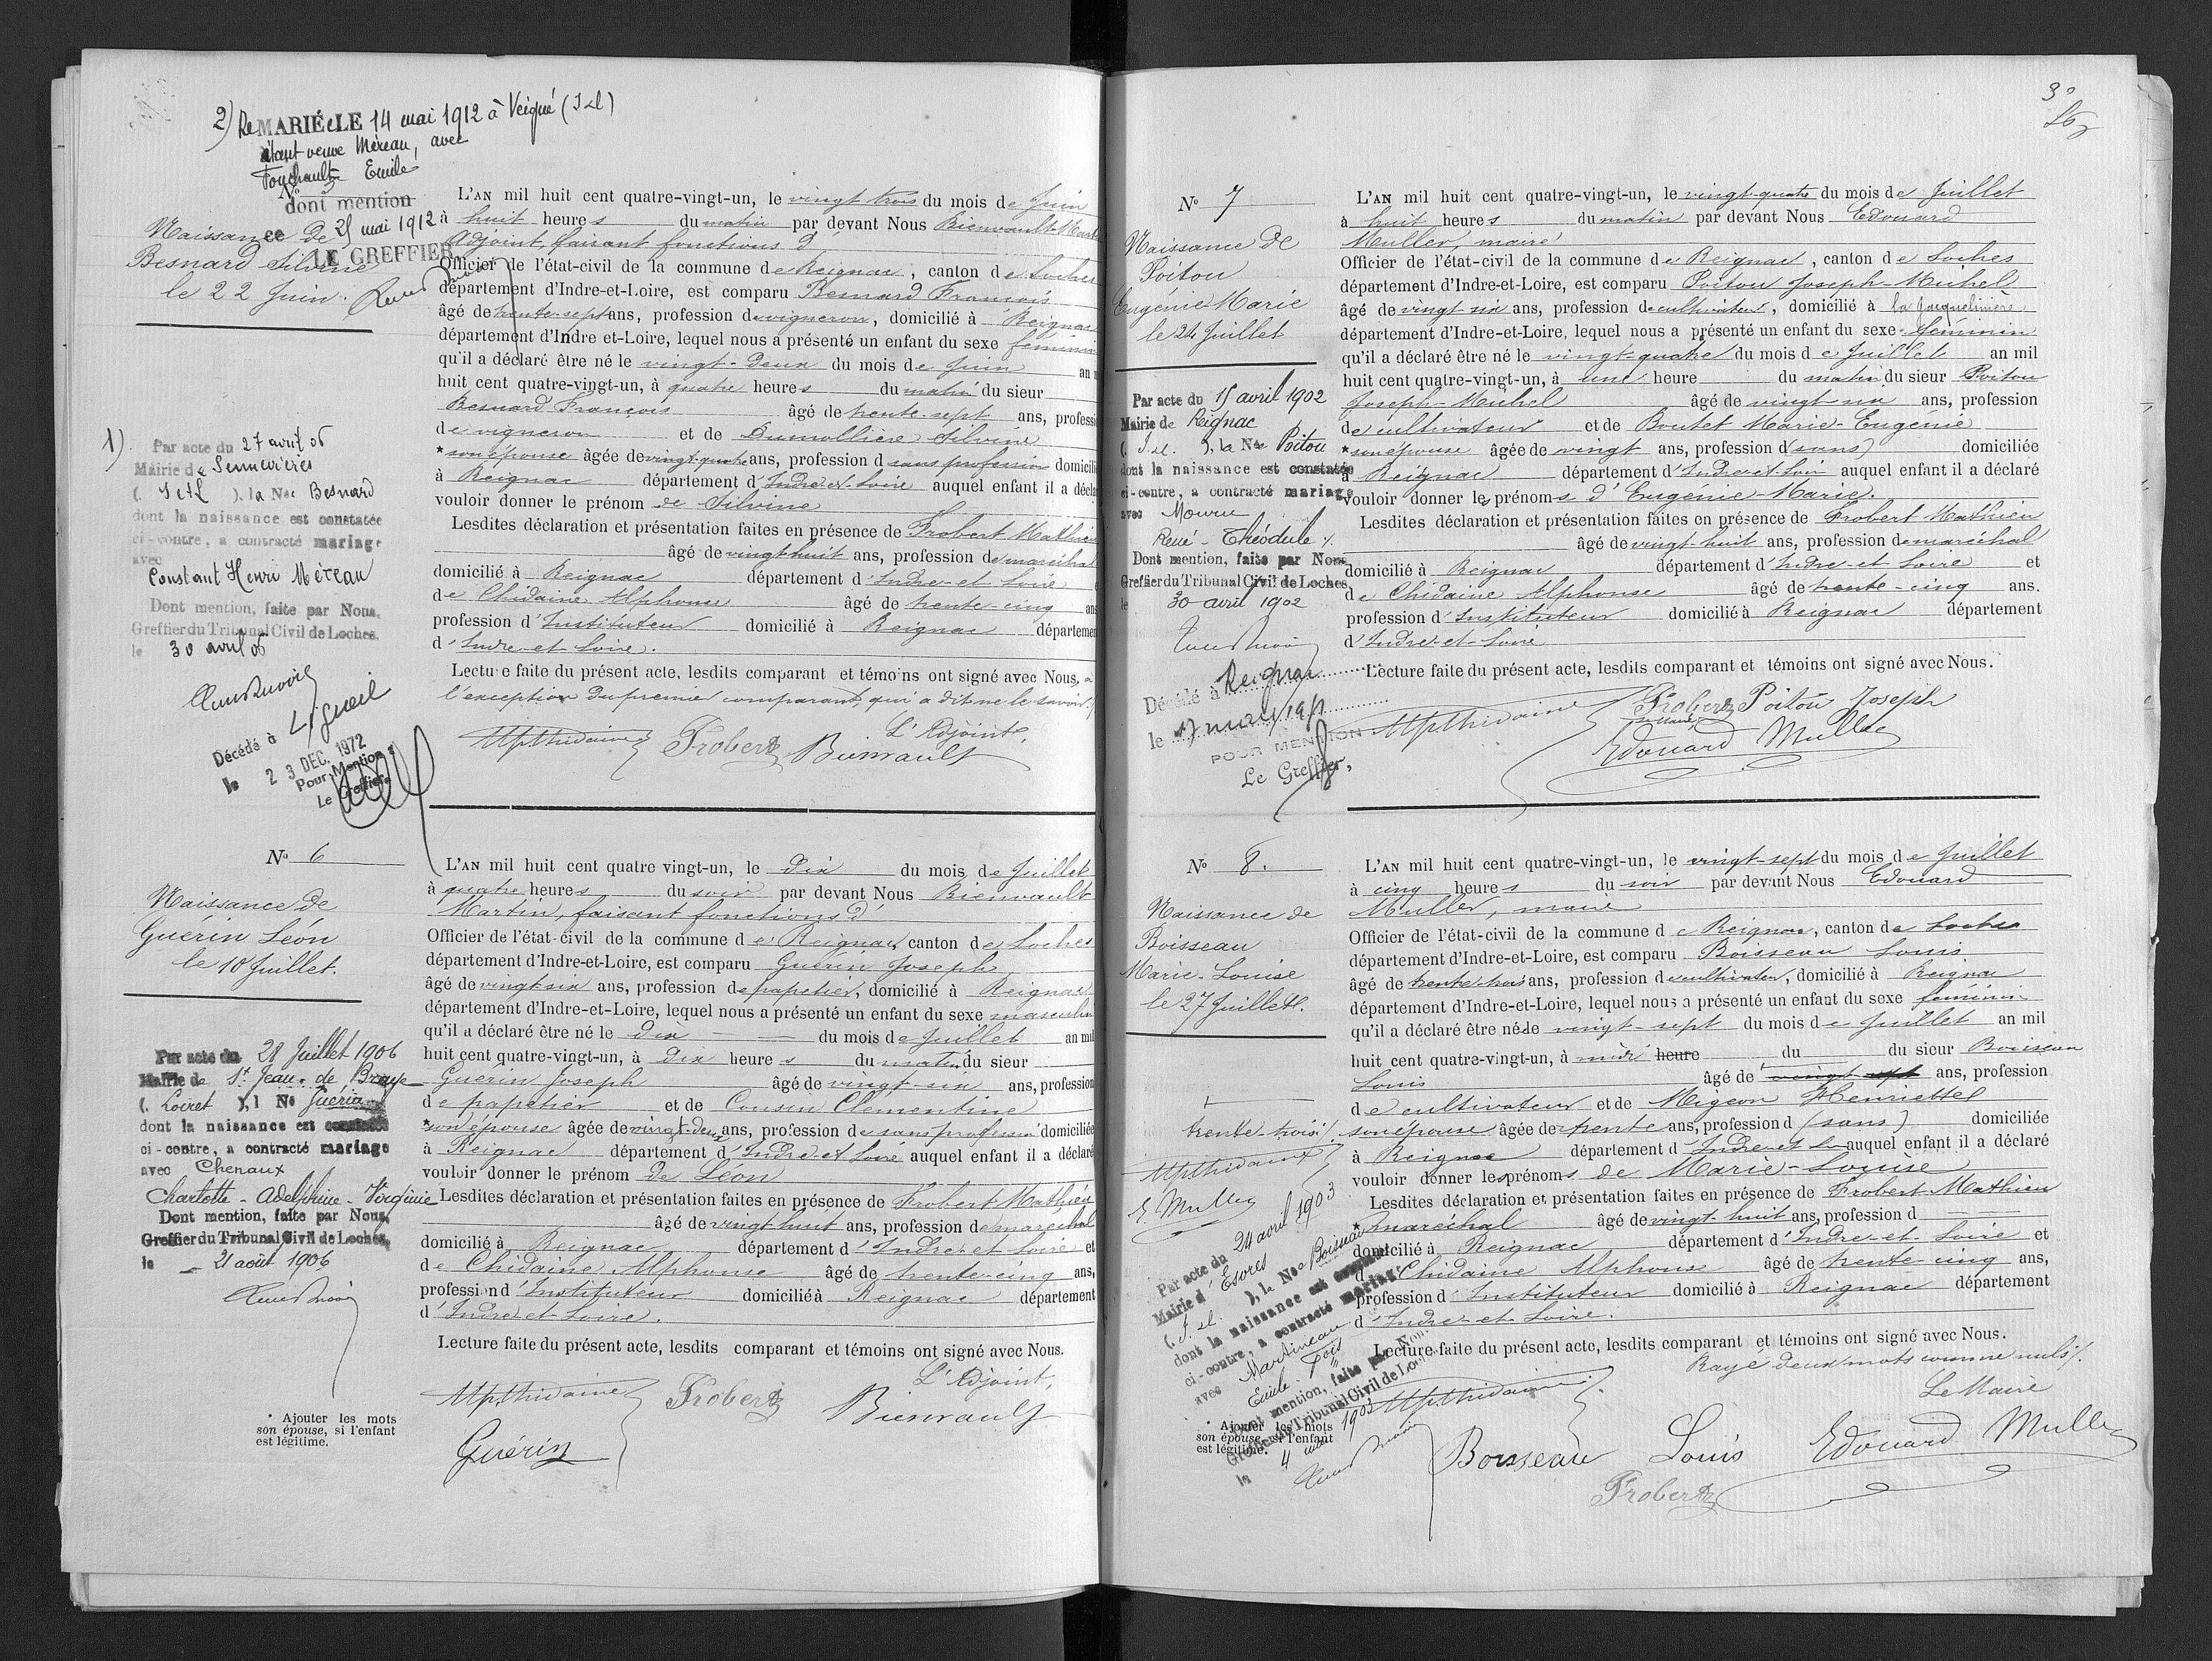 2) ReMARIÉe LE 14 mai 1912 à Veigné (I&L)
étant veuve Méreau, avec
Fouchault Emile
No 5
dont mention
25 mai 1912
LE GREFFIER
Naissance de
Besnard Silvine
le 22 Juin.
1)
Par acte du 27 avril 06
Mairie de Sennevières
(I et L), la Née Besnard
dont la naissance est constatée
ci-contre, a contracté mariage
avec
Constant Henri Méreau
Dont mention, faite par Nous,
Greffier du Tribunal Civil de Loches.
le 30 avril 06
Décédé à Ligueil
le 23 DEC. 1972
Pour Mention
Le Greffier
L'AN mil huit cent quatre-vingt-un, le vingt trois du mois de Juin
à huit heures du matin par devant Nous Bienvault Martin
Adjoint, faisant fonctions d'
Officier de l'état-civil de la commune de Reignac, canton de Loches
département d'Indre-et-Loire, est comparu Besnard François
âgé de trente-sept ans, profession de vigneron, domicilié à Reignac
département d'Indre et-Loire, lequel nous a présenté un enfant du sexe féminin
qu'il a déclaré être né le vingt-deux du mois de Juin an m
huit cent quatre-vingt-un, à quatre heures du matin du sieur
Besnard François âgé de trente-sept ans, professi
de vigneron et de Dumollière Silvine
*son épouse âgée de vingt-quatre ans, profession d sans profession domicili
à Reignac département d'Indre-et-Loire auquel enfant il a décla
vouloir donner le prénom de Silvine
Lesdites déclaration et présentation faites en présence de Frobert Mathieu
âgé de vingt-huit ans, profession de maréchal
domicilié à Reignac département d'Indre-et-Loire e
de Chidaine Alphonse âgé de trente-cinq ans
profession d'Instituteur domicilié à Reignac départemen
d'Indre-et-Loire.
Lecture faite du présent acte, lesdits comparant et témoins ont signé avec Nous, à
l'exception du premier comparant, qui a dit ne le savoir.
L'Adjoint,
Alp. Chidaine Frobert Bienvault
No 6
Naissance de
Guérin Léon
le 10 Juillet.
Par acte du 28 Juillet 1906
Mairie de St Jean-de Braye
(Loiret), l No Guérin
dont la naissance est constatée
ci-contre, a contracté mariage
avec Chenaux
Charlotte-Adelphine-Virginie
Dont mention, faite par Nous,
Greffier du Tribunal Civil de Loches,
le 21 août 1906
* Ajouter les mots
son épouse, si l'enfant
est légitime.
L'AN mil huit cent quatre vingt-un, le dix du mois de Juillet
à quatre heures du soir par devant Nous Bienvault
Martin, faisant fonctions d'
Officier de l'état-civil de la commune de Reignac, canton de Loches
département d'Indre-et-Loire, est comparu Guérin Joseph
âgé de vingt six ans, profession de papetier, domicilié à Reignac
département d'Indre-et-Loire, lequel nous a présenté un enfant du sexe masculin
qu'il a déclaré être né le dix du mois de Juillet an mil
huit cent quatre-vingt-un, à dix heures du matin du sieur
Guérin Joseph âgé de vingt-six ans, profession
de papetier et de Cousin Clémentine
*son épouse âgée de vingt-deux ans, profession de sans profession domiciliée
à Reignac département d'Indre et Loire auquel enfant il a déclaré
vouloir donner le prénom de Léon
Lesdites déclaration et présentation faites en présence de Frobert Mathieu
âgé de vingt huit ans, profession de maréchal
domicilié à Reignac département d'Indre et Loire et
de Chidaine Alphonse âgé de trente-cinq ans,
profession d'Instituteur domicilié à Reignac département
d'Indre et Loire.
Lecture faite du présent acte, lesdits comparant et témoins ont signé avec Nous.
L'Adjoint,
Alp. Chidaine Frobert Bienvault
Guérin
3e
No 7
Naissance de
Poitou
Eugénie Marie
le 24 Juillet
Par acte du 15 avril 1902
Mairie de Reignac
(I.&L.), la Née Poitou
dont la naissance est constatée
ci-contre, a contracté mariage
avec Mourru
René-Théodule
Dont mention, faite par Nous
Greffier du Tribunal Civil de Loches
le 30 avril 1902
Décédé à Reignac
le 17 mars 1971
POUR MENTION
Le Greffier,
L'AN mil huit cent quatre-vingt-un, le vingt-quatre du mois de Juillet
à huit heures du matin par devant Nous Edouard
Muller, maire
Officier de l'état-civil de la commune de Reignac, canton de Loches
département d'Indre-et-Loire, est comparu Poitou Joseph-Michel
âgé de vingt six ans, profession de cultivateur, domicilié à la Jacquelinière
département d'Indre-et-Loire, lequel nous a présenté un enfant du sexe féminin
qu'il a déclaré être né le vingt-quatre du mois de Juillet an mil
huit cent quatre-vingt-un, à une heure du matin du sieur Poitou
Joseph-Michel âgé de vingt-six ans, profession
de cultivateur et de Boutet Marie-Eugénie
*son épouse âgée de vingt ans, profession d (sans) domiciliée
à Reignac département d'Indre et Loire auquel enfant il a déclaré
vouloir donner les prénoms d'Eugénie-Marie.
Lesdites déclaration et présentation faites en présence de Frobert Mathieu
âgé de vingt-huit ans, profession de maréchal
domicilié à Reignac département d'Indre-et Loire et
de Chidaine Alphonse âgé de trente-cinq ans.
profession d'Instituteur domicilié à Reignac département
d'Indre-et-Loire
Lecture faite du présent acte, lesdits comparant et témoins ont signé avec Nous.
Alp. Chidaine Frobert Poitou Joseph
Le Maire
Edouard Muller
No 8.
Naissance de
Boisseau
Marie-Louise
le 27 Juillet.
trente-trois
Alp. Chidaine
E. Muller
Par acte du 24 avril 1903
Mairie d'Esvres
(I.&L.), la Née Boisseau
dont la naissance est constatée
ci-contre, a contracté mariage
avec Martineau
Emile-Fois
Dont mention, faite par Nous
Greffier du Tribunal Civil de Loches
le 4 mai 1903
* Ajouter les mots
son épouse, si l'enfant
est légitime.
L'AN mil huit cent quatre-vingt-un, le vingt-sept du mois de Juillet
à cinq heures du soir par devant Nous Edouard
Muller, maire
Officier de l'état-civil de la commune de Reignac, canton de Loches
département d'Indre-et-Loire, est comparu Boisseau Louis
âgé de trente-trois ans, profession de cultivateur, domicilié à Reignac
département d'Indre-et-Loire, lequel nous a présenté un enfant du sexe féminin
qu'il a déclaré être né le vingt-sept du mois de Juillet an mil
huit cent quatre-vingt-un, à midi heure du du sieur Boisseau
Louis âgé de vingt-sept ans, profession
de cultivateur et de Migeon Henriette
son épouse âgée de trente ans, profession d (sans) domiciliée
à Reignac département d'Indre et L auquel enfant il a déclaré
vouloir donner les prénoms de Marie-Louise
Lesdites déclaration et présentation faites en présence de Frobert Mathieu
*maréchal âgé de vingt-huit ans, profession d
domicilié à Reignac département d'Indre-et-Loire et
d Chidaine Alphonse âgé de trente-cinq ans,
profession d'Instituteur domicilié à Reignac département
d'Indre-et-Loire.
Lecture faite du présent acte, lesdits comparant et témoins ont signé avec Nous.
Rayé deux mots comme nuls.
Le Maire
Alp. Chidaine
Boisseau Louis Edouard Muller
Frobert